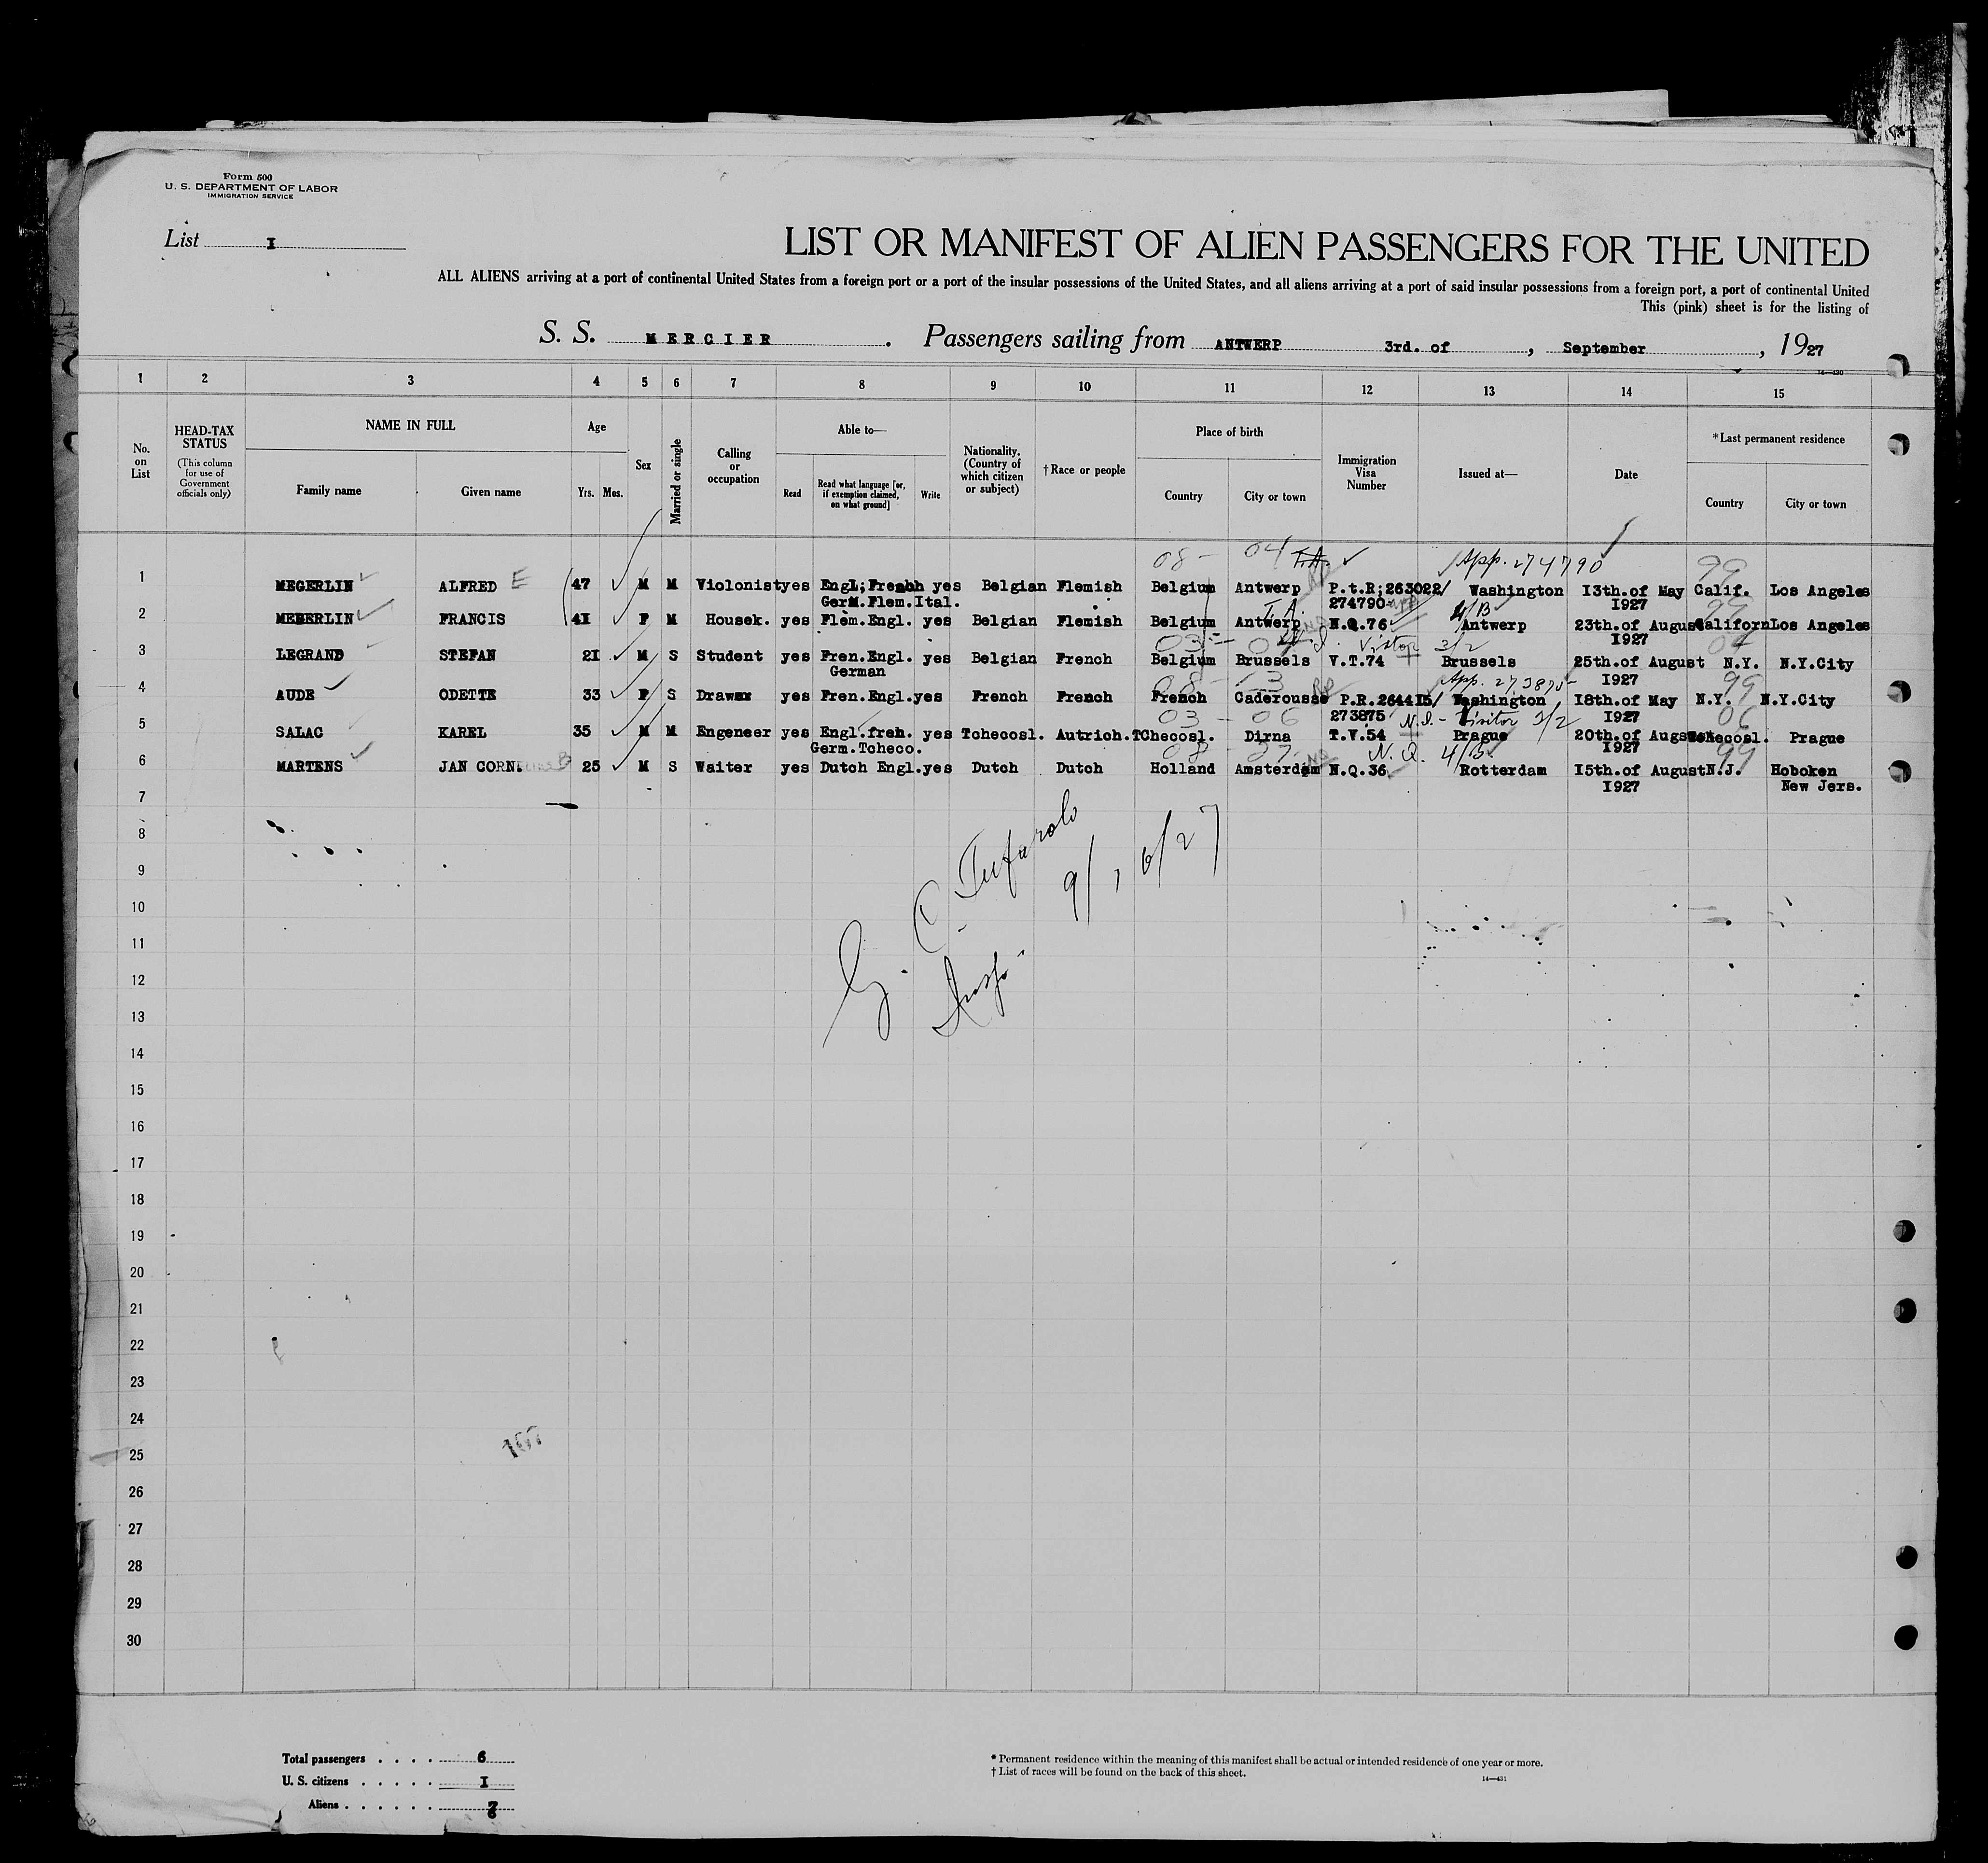 Form 500
U. S. DEPARTMENT OF LABOR
IMMIGRATION SERVICE
List I
LIST OR MANIFEST OF ALIEN PASSENGERS FOR THE UNITED
ALL ALIENS arriving at a port of continental United States from a foreign port or a port of the insular possessions of the United States, and all aliens arriving at a port of said insular possessions from a foreign port, a port of continental United
This (pink) sheet is for the listing of
S. S. MERCIER . Passengers sailing from ANTWERP 3rd. of , September , 1927
14—430
1 2 3 4 5 6 7 8 9 10 11 12 13 14 15
No. on List
HEAD-TAX STATUS
(This column for use of Government officials only)
NAME IN FULL
Family name
Given name
Age
Yrs. Mos.
Sex
Married or single
Calling or occupation
Able to—
Read
Read what language [or, if exemption claimed, on what ground]
Write
Nationality. (Country of which citizen or subject)
† Race or people
Place of birth
Country
City or town
Immigration Visa Number
Issued at—
Date
* Last permanent residence
Country
City or town
08 - 04 T.A. App. 274790 99
1 MEGERLIN ALFRED E 47 M M Violonist yes Engl;French yes Belgian Flemish Belgium Antwerp P.t.R;263022/ Washington 13th.of May Calif. Los Angeles
Germ.Flem.Ital. 274790 I927
T.A. 4/B 99
2 MEGERLIN FRANCIS 4I F M Housek. yes Flem.Engl. yes Belgian Flemish Belgium Antwerp N.Q.76 Antwerp 23th.of August Californ Los Angeles
I927
03 - 04 Visitor 3/2 04
3 LEGRAND STEFAN 2I M S Student yes Fren.Engl. yes Belgian French Belgium Brussels V.T.74 Brussels 25th.of August N.Y. N.Y.City
German I927
08 - 13 App. 273875 99
4 AUDE ODETTE 33 F S Drawer yes Fren.Engl. yes French French French Caderousse P.R.2644I5/ Washington I8th.of May N.Y. N.Y.City
273875 I927
03 - 06 N.I - Visitor 3/2 06
5 SALAC KAREL 35 M M Engeneer yes Engl.freh. yes Tchecosl. Autrich. TChecosl. Dirna T.V.54 Prague 20th.of August Tchecosl. Prague
Germ.Tcheco. I927
08 - 27 N.Q. 4/B 99
6 MARTENS JAN CORN 25 M S Waiter yes Dutch Engl. yes Dutch Dutch Holland Amsterdam N.Q.36 Rotterdam I5th.of August N.J. Hoboken
I927 New Jers.
7
8
9
10
11
12
13
14
15
16
17
18
19
20
21
22
23
24
25
26
27
28
29
30
G. C. Tufarolo
Insp.
9/16/27
Total passengers . . . . 6
U. S. citizens . . . . . I
Aliens . . . . . .
* Permanent residence within the meaning of this manifest shall be actual or intended residence of one year or more.
† List of races will be found on the back of this sheet.
14—431